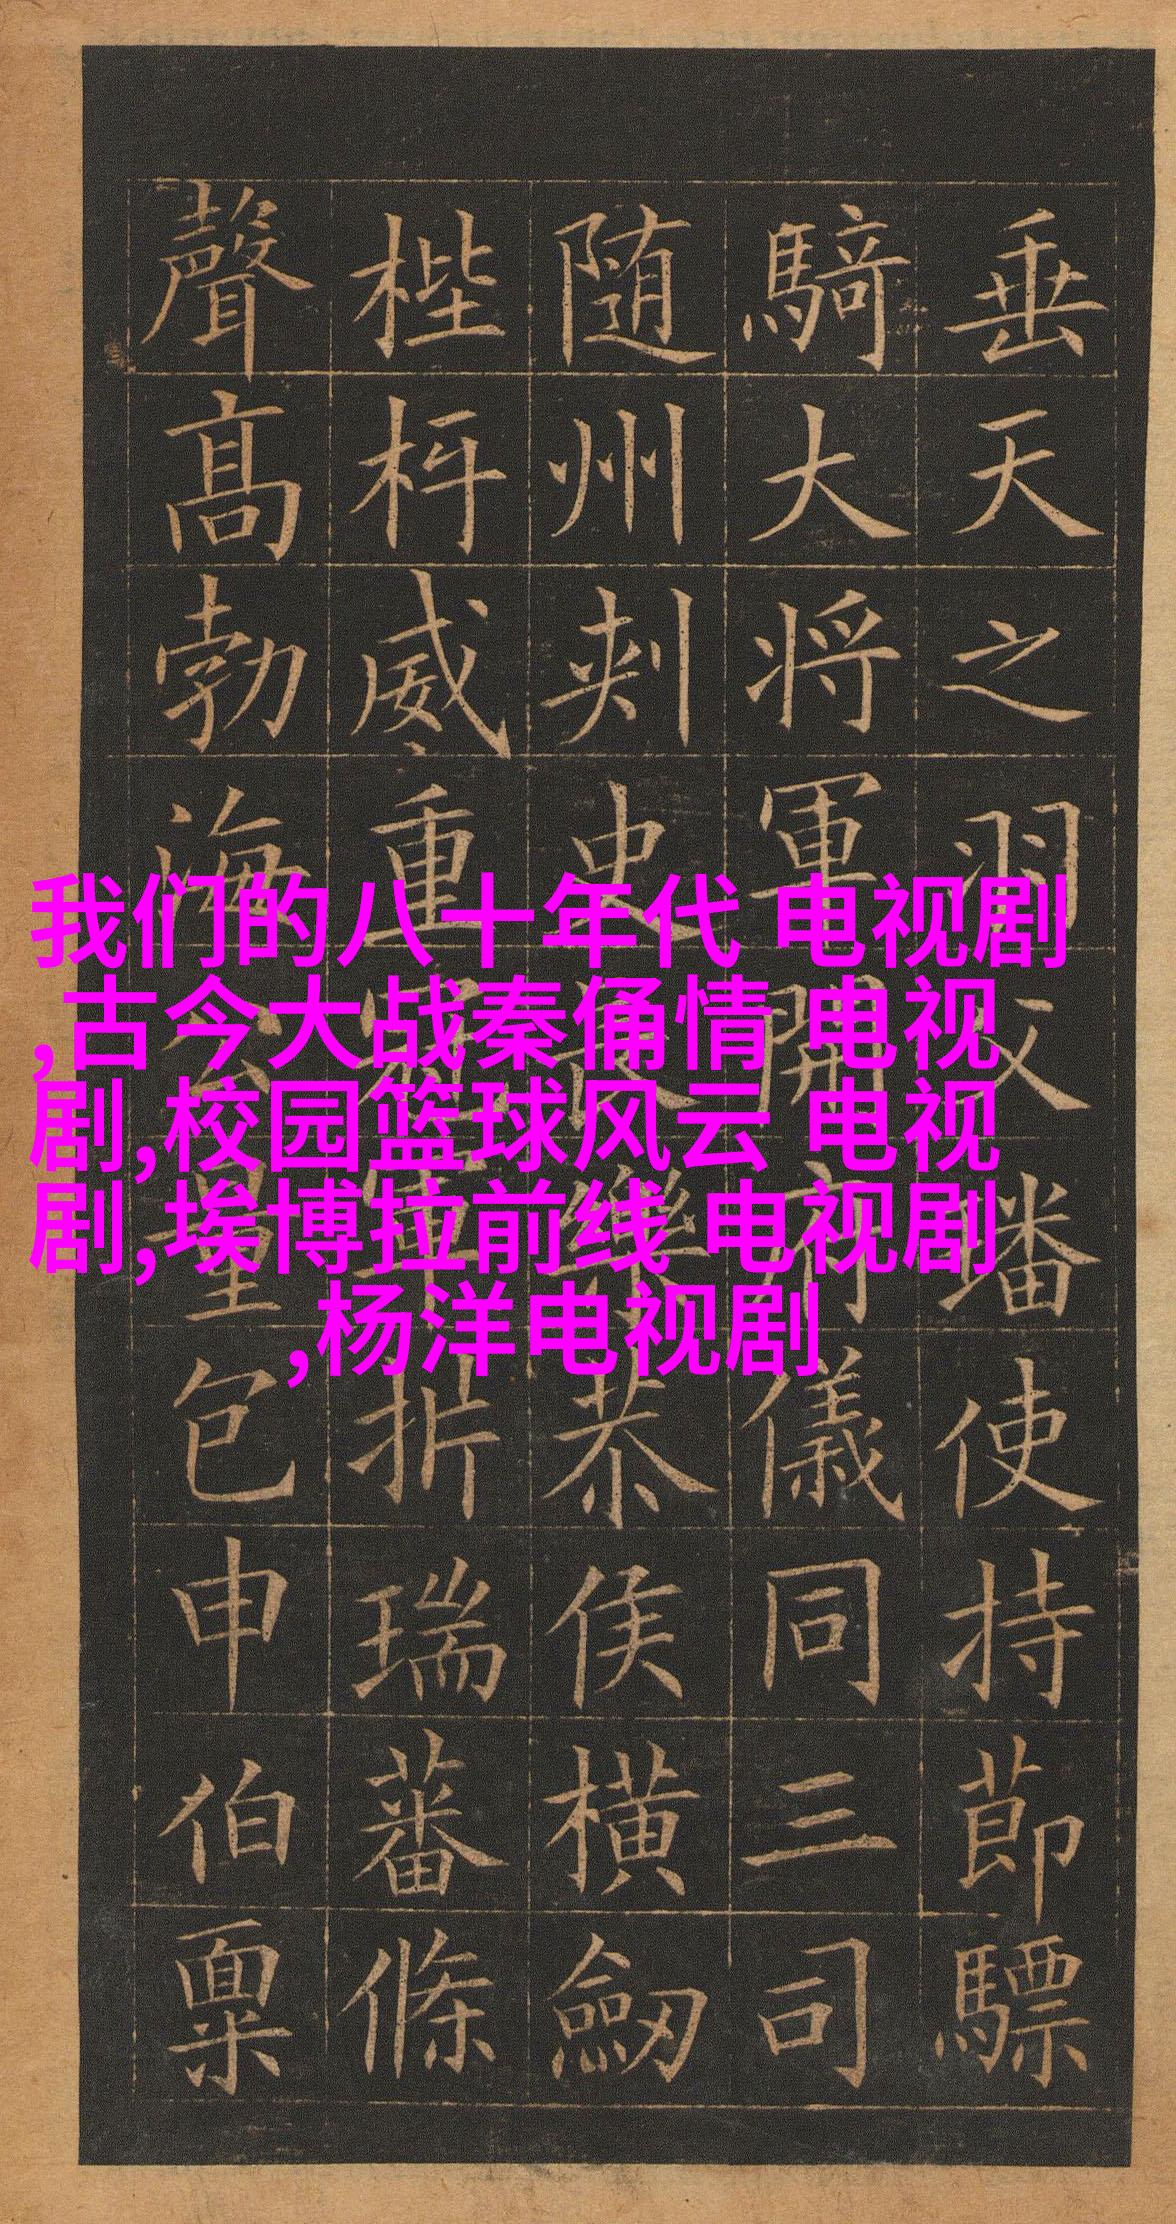 垂天之羽父墦使持節驃
騎大将軍開府儀同三司
随州刾史長樂恭侯橫劒
梐枑威重冠軍折瑞蕃條
聲高勃海公量包申伯稟
我们的八十年代 电视剧
,古今大战秦俑情 电视
剧,校园篮球风云 电视
剧,埃博拉前线 电视剧
,杨洋电视剧